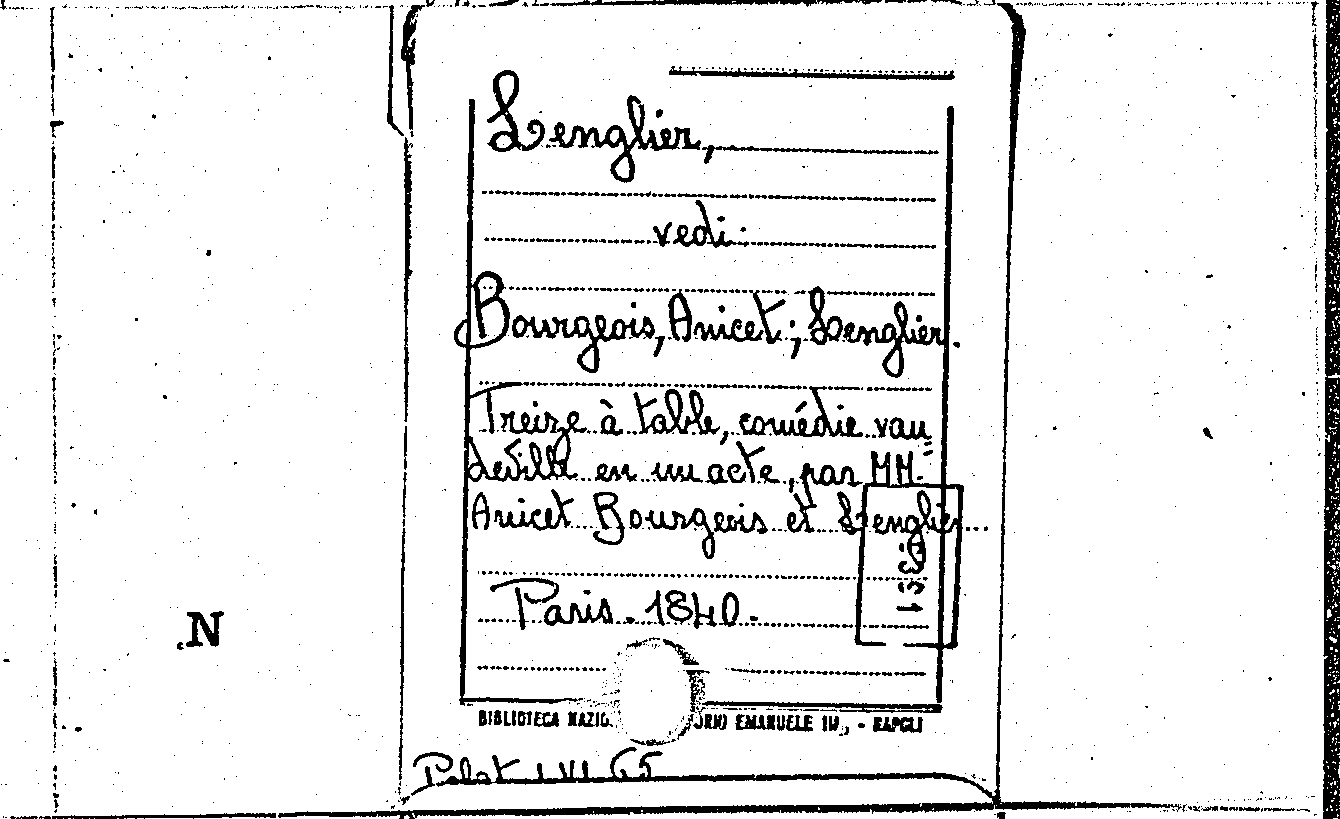 Lenglier,
vedi:
Bourgeois, Anicet; Lenglier.
Treize à table, comédie vau
deville en un acte, par MM.
Anicet Bourgeois et Lenglier...
Paris. 1840.
N
BIBLIOTECA EMANUELE III, - NAPOLI